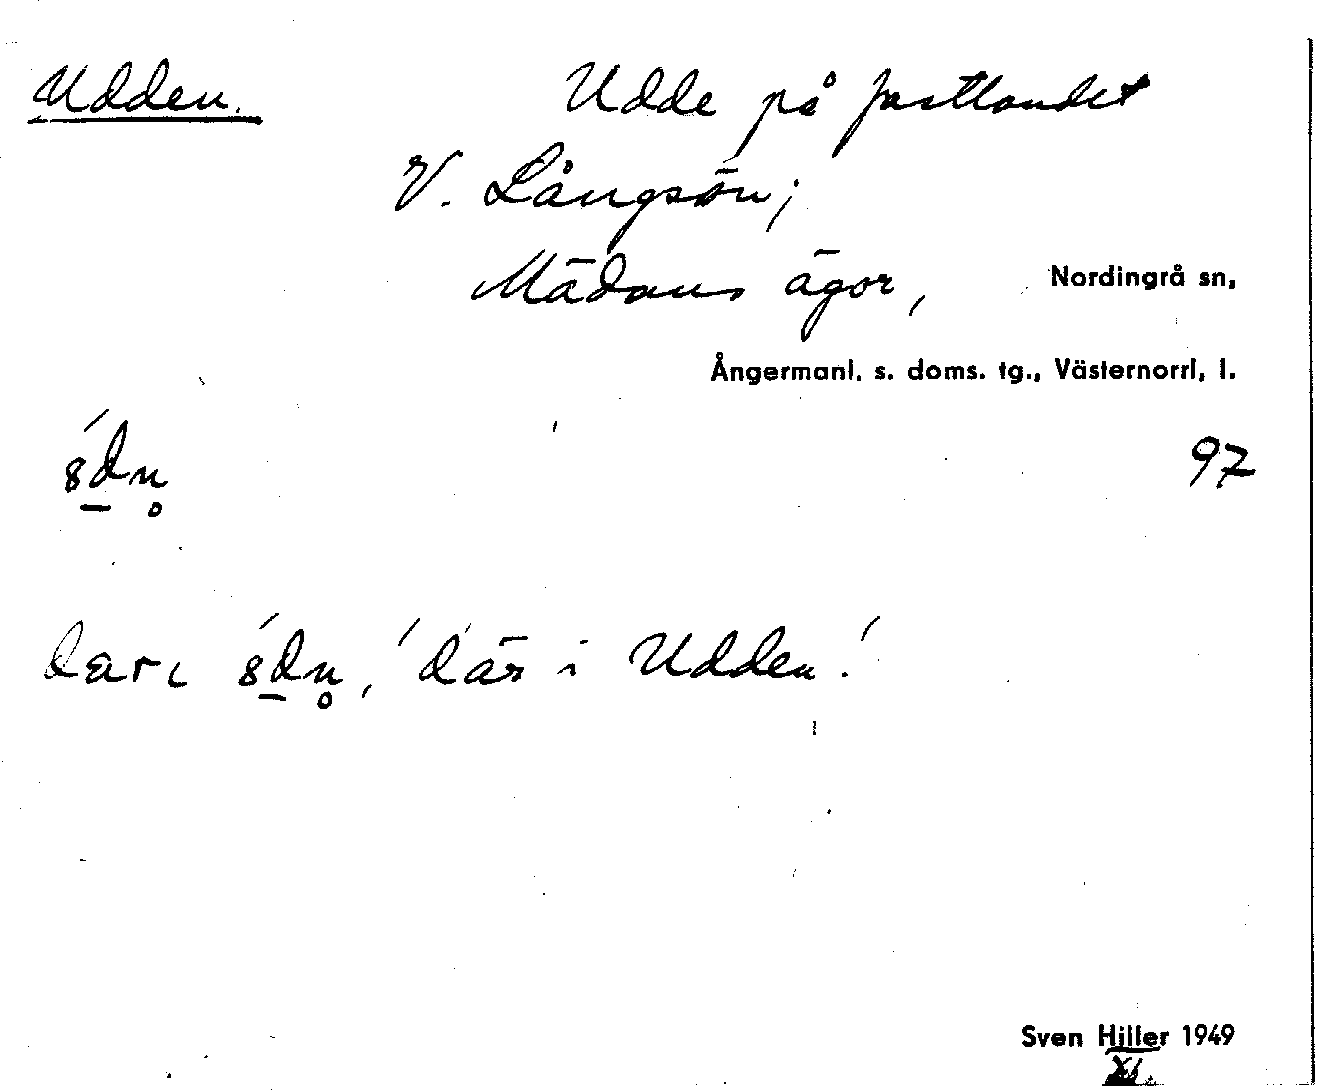 Udden. Udde på fastlandet
V. Långsön;
Mädans ägor, Nordingrå sn,
Ångermanl. s. doms. tg., Västernorrl. l.
97
där i Udden.
Sven Hiller 1949